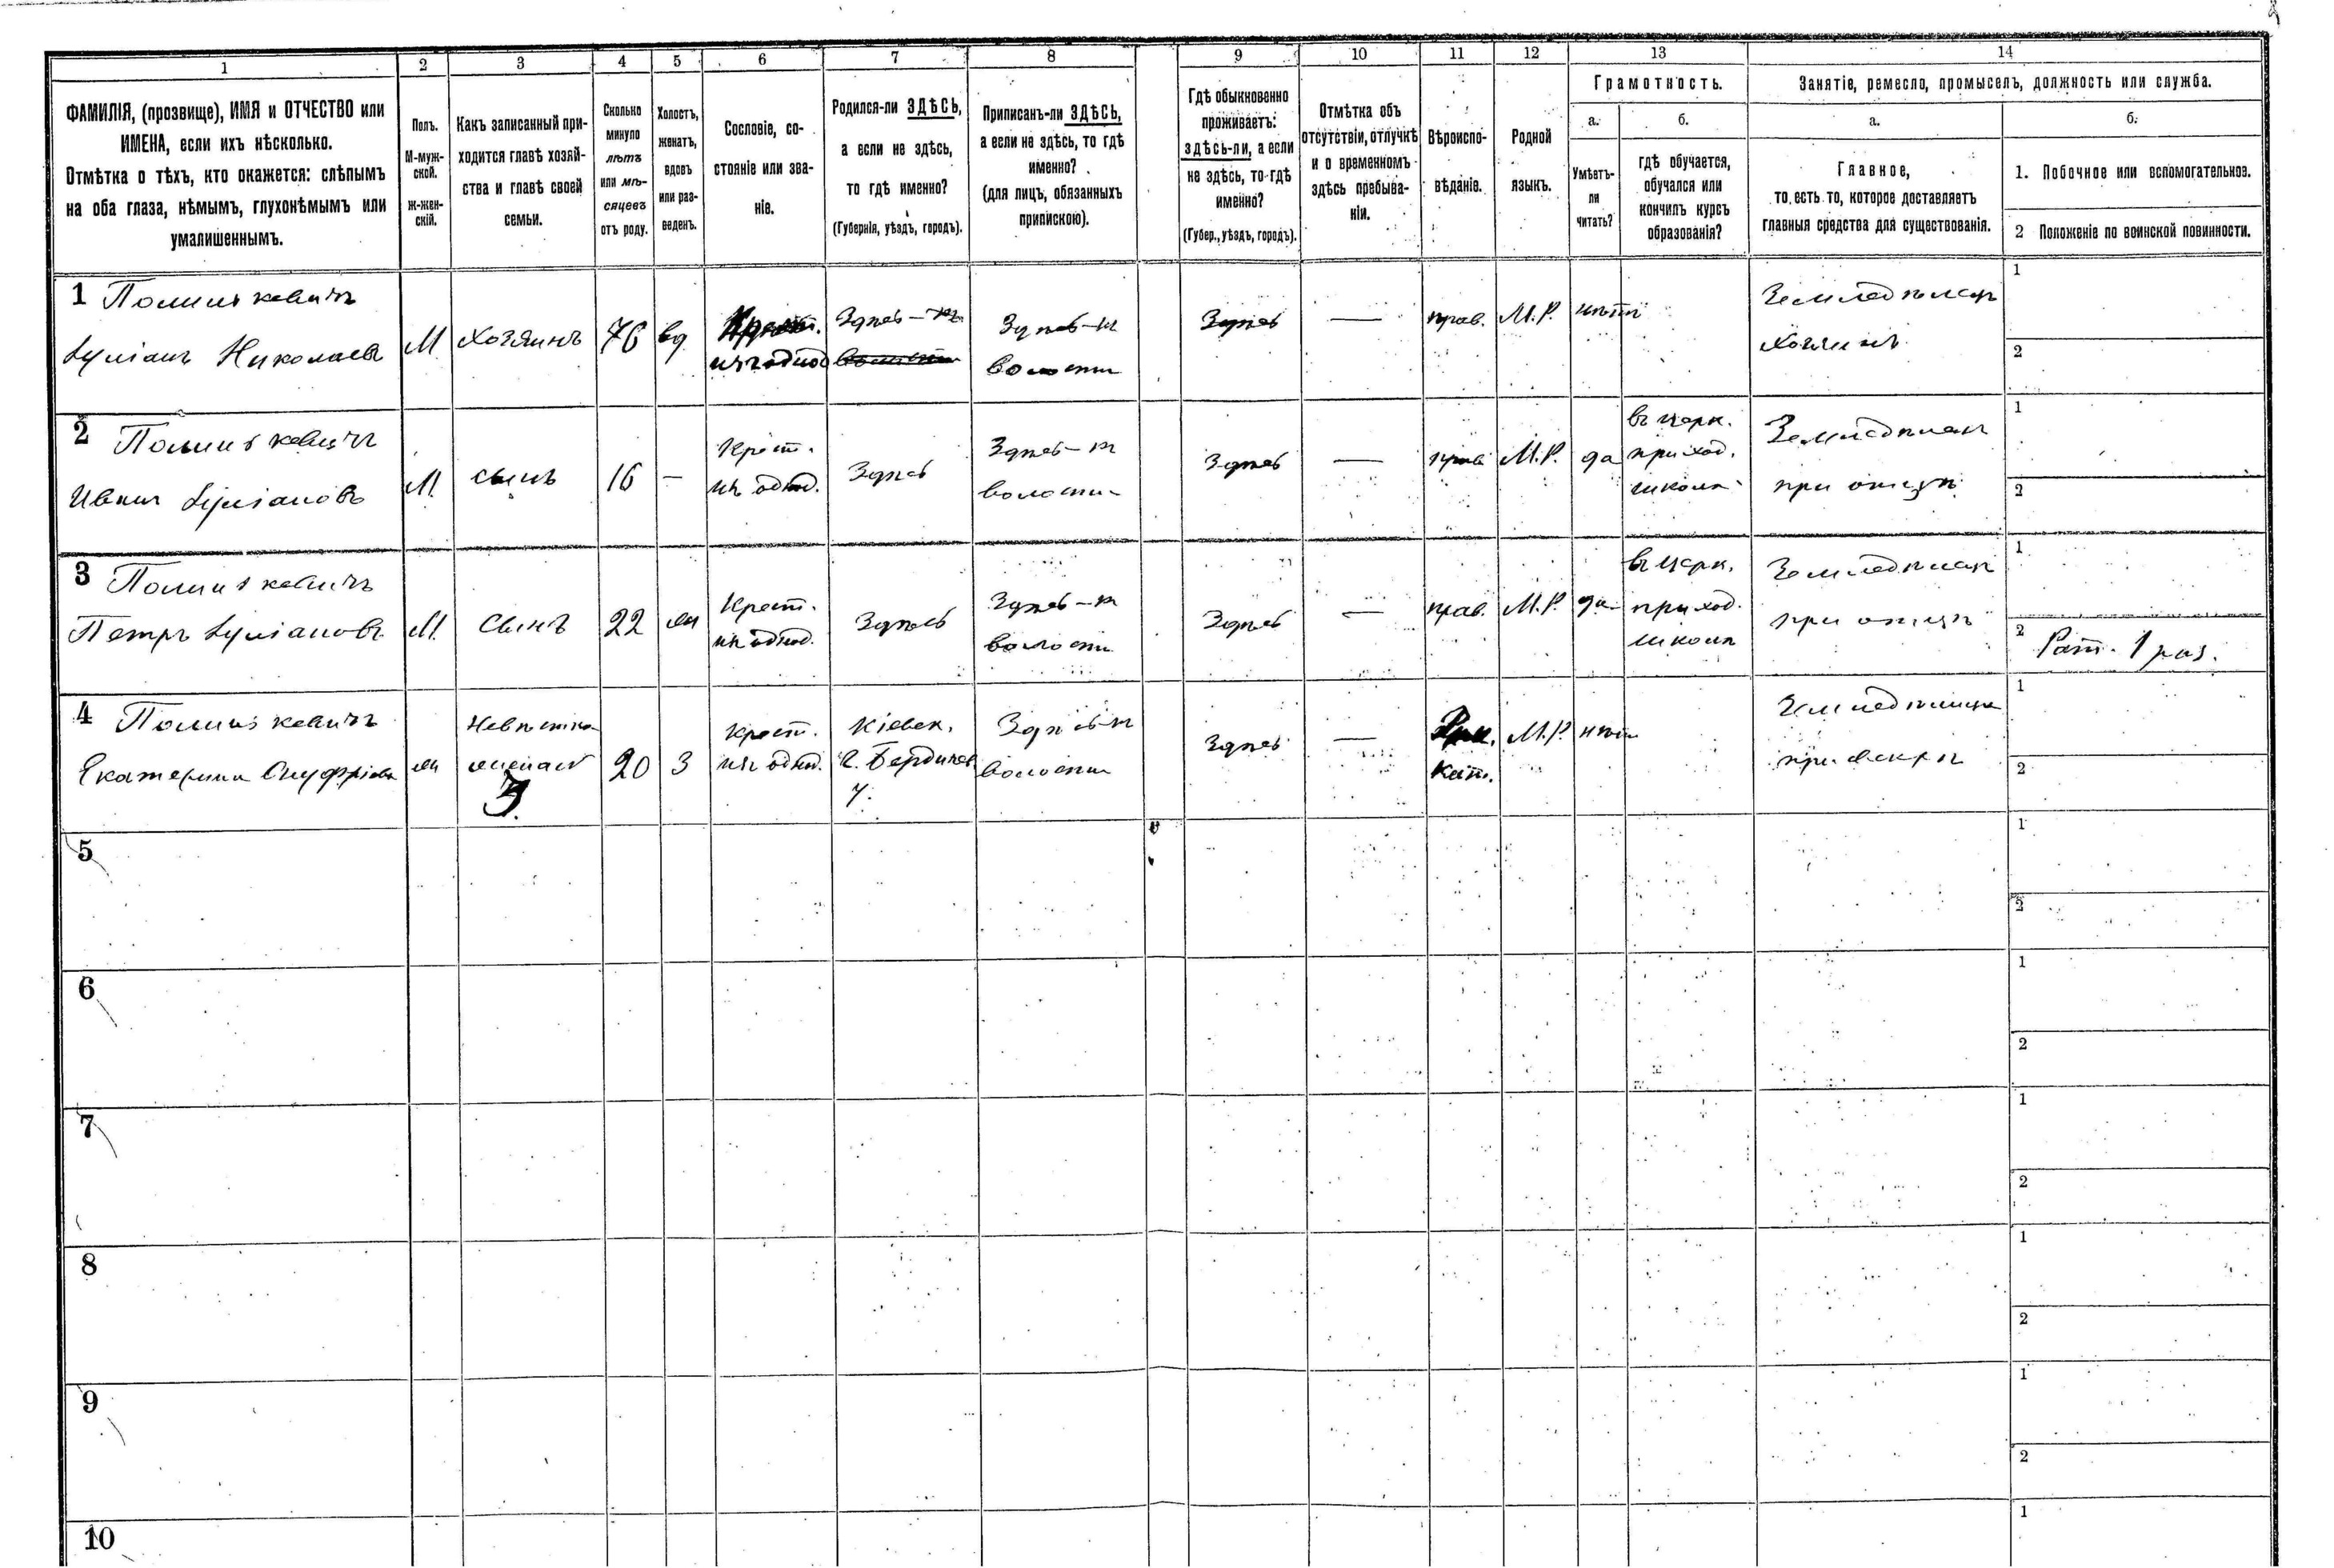 1 2 3 4 5 6 7 8 9 10 11 12 13 14
ФАМИЛІЯ, (прозвище), ИМЯ и ОТЧЕСТВО или
ИМЕНА, если ихъ нѣсколько.
Отмѣтка о тѣхъ, кто окажется: слѣпымъ
на оба глаза, нѣмымъ, глухонѣмымъ или
умалишеннымъ.
Полъ.
М-муж-
ской.
Ж-жен-
скій.
Какъ записанный при-
ходится главѣ хозяй-
ства и главѣ своей
семьи.
Сколько
минуло
лѣтъ
или мѣ-
сяцевъ
отъ роду.
Холостъ,
женатъ,
вдовъ
или раз-
веденъ.
Сословіе, со-
стояніе или зва-
ніе.
Родился-ли ЗДѢСЬ,
а если не здѣсь,
то гдѣ именно?
(Губернія, уѣздъ, городъ).
Приписанъ-ли ЗДѢСЬ,
а если не здѣсь, то гдѣ
именно?
(для лицъ, обязанныхъ
припискою).
Гдѣ обыкновенно
проживаетъ:
здѣсь-ли, а если
не здѣсь, то гдѣ
именно?
(Губер., уѣздъ, городъ).
Отмѣтка объ
отсутствіи, отлучкѣ
и о временномъ
здѣсь пребыва-
ніи.
Вѣроиспо-
вѣданіе.
Родной
языкъ.
Грамотность.
а.
Умѣетъ-
ли
читать?
б.
гдѣ обучается,
обучался или
кончилъ курсъ
образованія?
Занятіе, ремесло, промыселъ, должность или служба.
а.
Главное,
то есть то, которое доставляетъ
главныя средства для существованія.
б.
1. Побочное или вспомогательное.
2 Положеніе по воинской повинности.
1
Юліанъ Николаевъ
М
Хозяинъ
76
вд
Крест.
изъ однод
Здѣсь-й
волости
Здѣсь-й
волости
Здѣсь
—
прав.
М.Р.
нѣтъ
Земледѣлецъ
хозяинъ
1
2
2
Иванъ Юліановъ
М.
сынъ
16
—
Крест.
изъ однод.
Здѣсь
Здѣсь-й
волости
Здѣсь
—
прав
М.Р.
да
въ церк.
приход.
школѣ
Земледѣлец
при отцѣ
1
2
3
Петръ Юліановъ
М.
сынъ
22
ж
Крест.
изъ однод.
Здѣсь
Здѣсь-й
волости
Здѣсь
—
прав.
М.Р.
да
въ церк.
приход.
школѣ
Земледѣлец
при отцѣ
1
2 Рат. 1 раз.
4
Екатерина Онуфріева
ж
Невѣстка
3
20
З
Крест.
изъ однод.
Кіевск.
г. Бердичев
у.
Здѣсь-й
волости
Здѣсь
—
Рим.
Кат.
М.Р.
нѣтъ
при свекрѣ
1
2
5
1
2
6
1
2
7
1
2
8
1
2
9
1
2
10
1